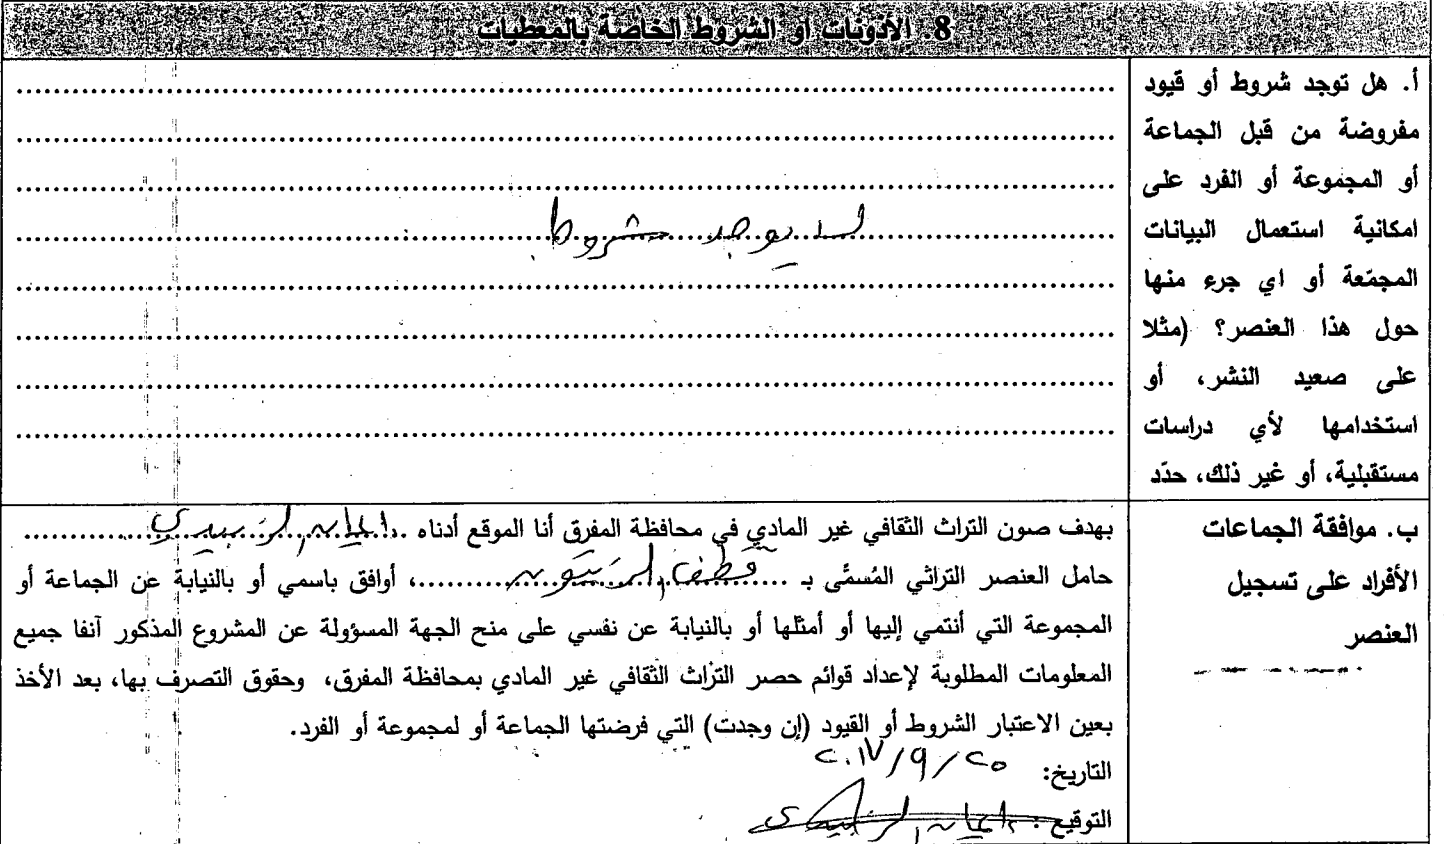 8. الأذونات او الشروط الخاصة بالمعطيات
أ. هل توجد شروط أو قيود
مفروضة من قبل الجماعة
أو المجموعة أو الفرد على
امكانية استعمال البيانات
المجمّعة أو اي جرء منها
حول هذا العنصر؟ (مثلا
على صعيد النشر، أو
استخدامها لأي دراسات
مستقبلية، أو غير ذلك، حدّد
لا يوجد شروط
ب. موافقة الجماعات
الأفراد على تسجيل
العنصر
بهدف صون التراث الثقافي غير المادي في محافظة المفرق أنا الموقع أدناه الزبيدي
حامل العنصر التراثي المُسمّى بـ قطف الزيتون، أوافق باسمي أو بالنيابة عن الجماعة أو
المجموعة التي أنتمي إليها أو أمثلها أو بالنيابة عن نفسي على منح الجهة المسؤولة عن المشروع المذكور آنفا جميع
المعلومات المطلوبة لإعداد قوائم حصر التراث الثقافي غير المادي بمحافظة المفرق، وحقوق التصرف بها، بعد الأخذ
بعين الاعتبار الشروط أو القيود (إن وجدت) التي فرضتها الجماعة أو لمجموعة أو الفرد.
التاريخ: ٢٠١٧/٩/٢٥
التوقيع: